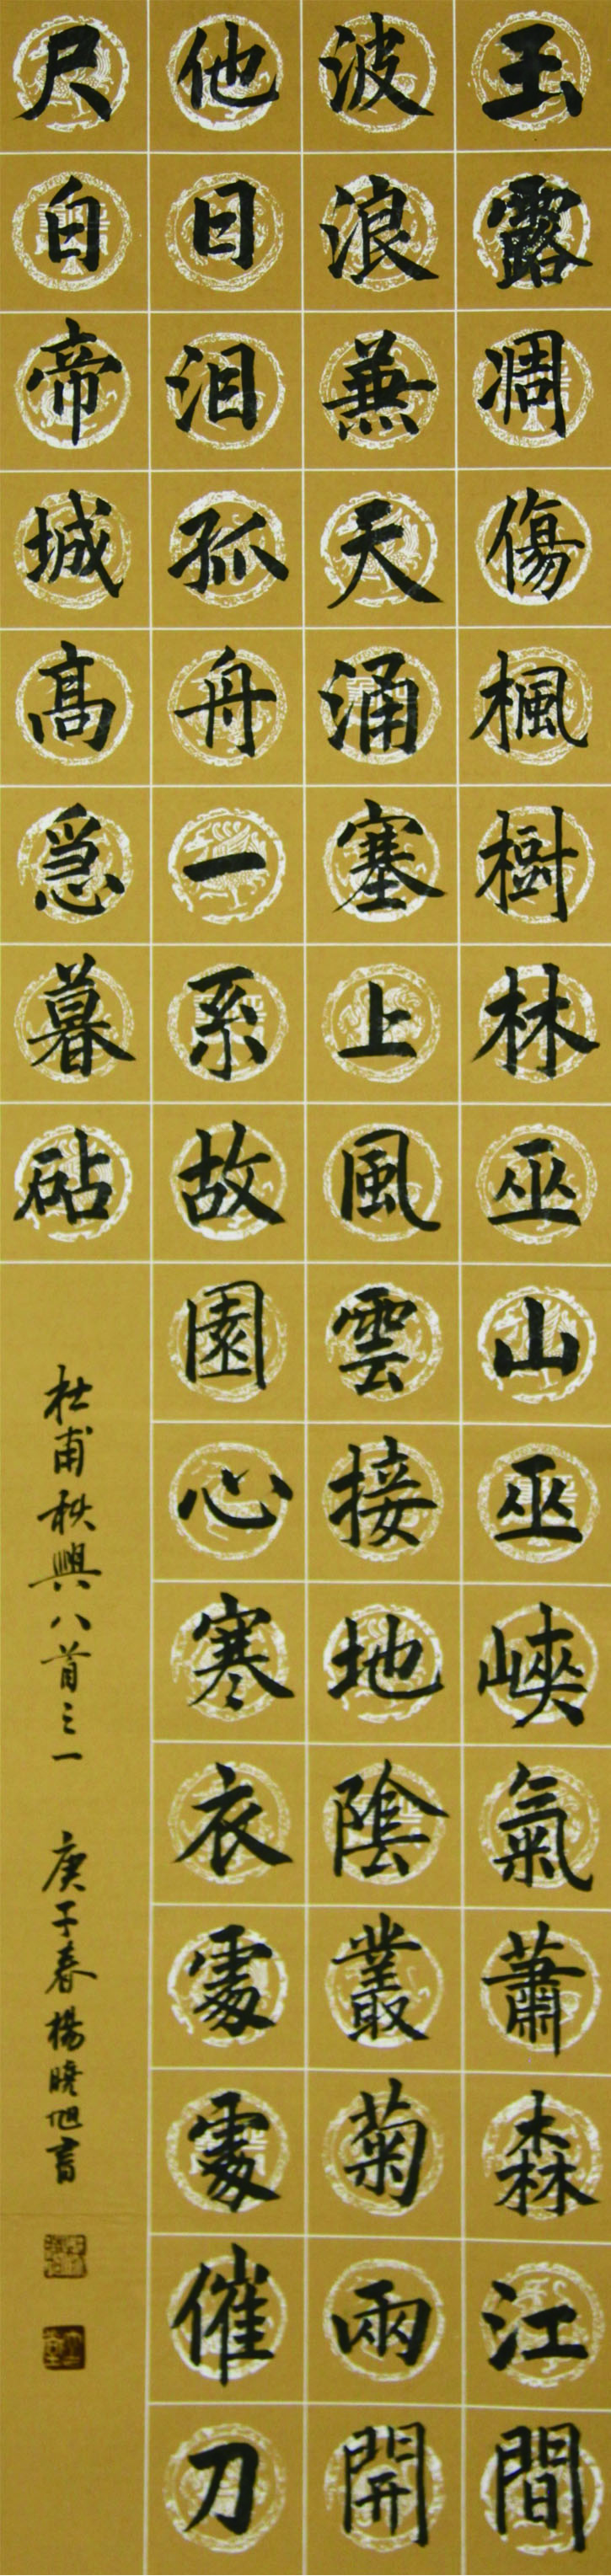 玉露凋傷楓樹林巫山巫峽氣蕭森江間
波浪蕪天涌塞上風雲接地隂叢菊兩開
他日泪孤舟一系故園心寒衣處處催刀
尺白帝城髙急暮砧
杜甫秋興八首之一 庚子春楊曉旭書